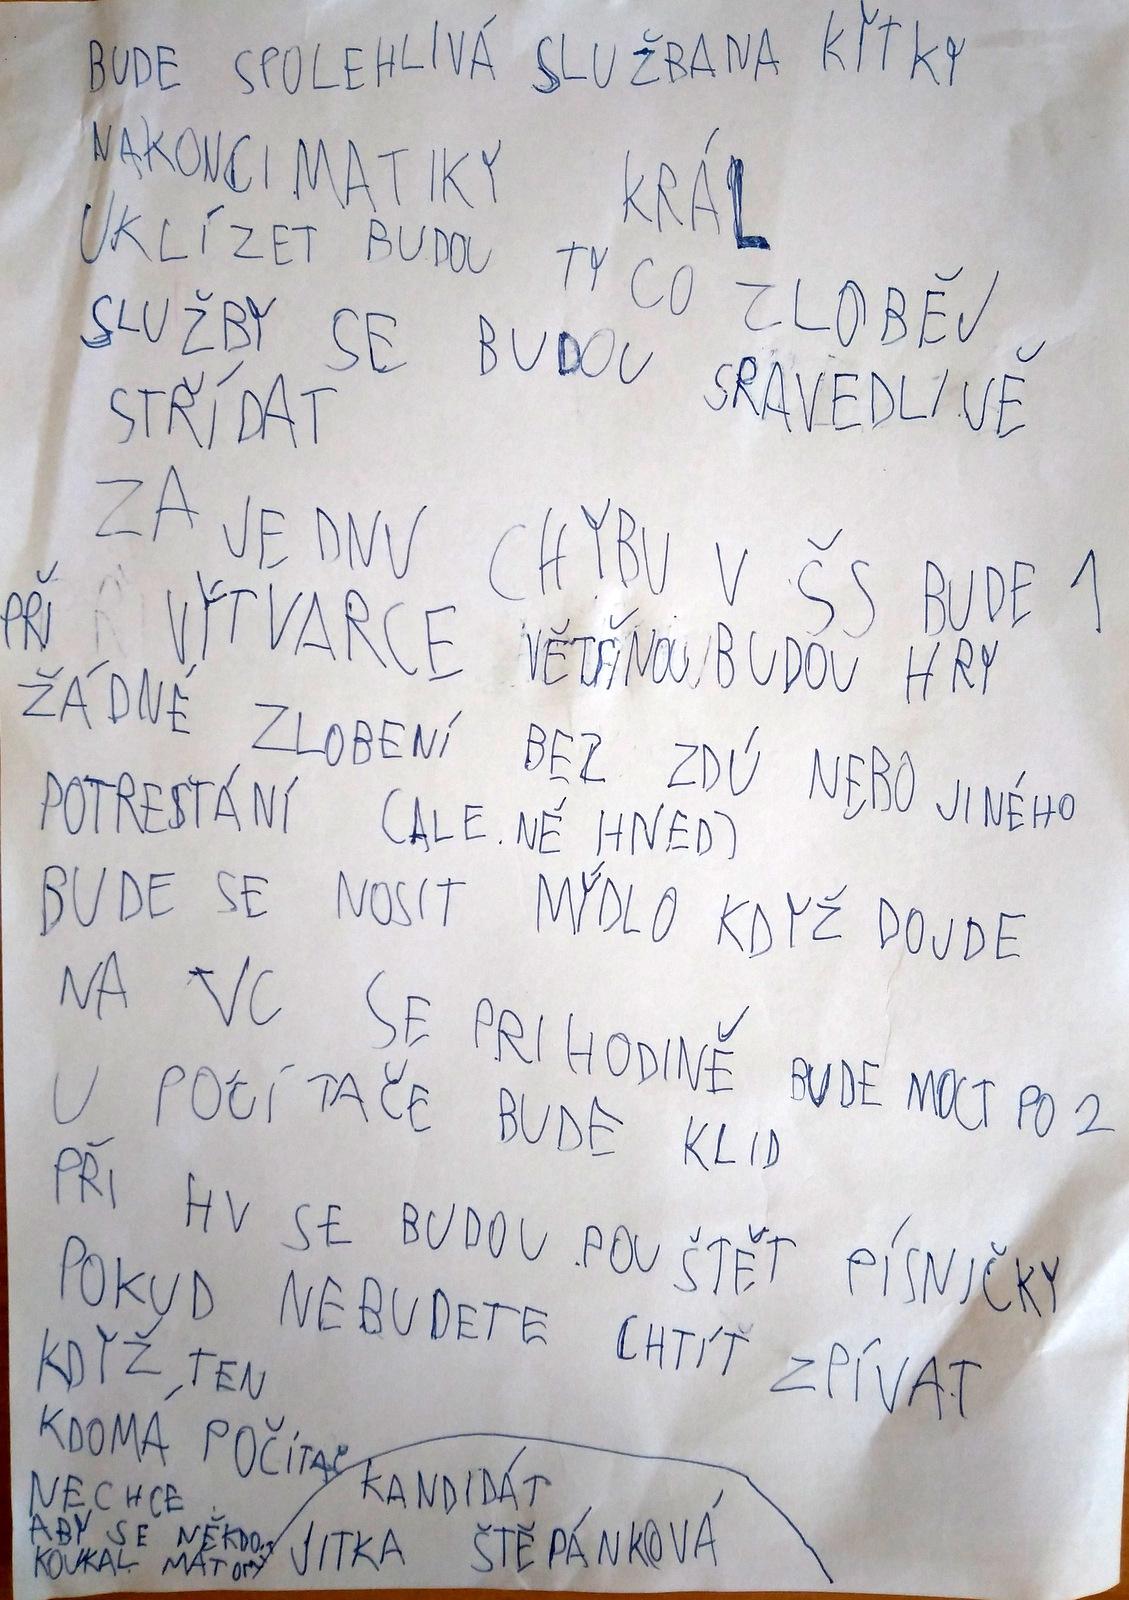 BUDE SPOLEHLIVÁ SLUŽBANA KYTKY
NAKONCI MATIKY KRÁL
UKLÍZET BUDOU TY CO ZLOBĚJ
SLUŽBY SE BUDOU SRAVEDLIVĚ
STŘÍDAT
ZA JEDNU CHYBU V ŠS BUDE 1
PŘI VÝTVARCE VĚTŠÍNOU BUDOU HRY
ŽÁDNÉ ZLOBENÍ BEZ ZDÚ NEBO JINÉHO
POTRESTÁNÍ (ALE NÉ HNED)
BUDE SE NOSIT MÝDLO KDYŽ DOJDE
NA VC SE PRI HODINĚ BUDE MOCT PO 2
U POČÍTAČE BUDE KLID
PŘI HV SE BUDOU POUŠTĚT PÍSNIČKY
POKUD NEBUDETE CHTÍT ZPÍVAT
KDYŽ TEN
KDOMÁ POČÍTAČ
NECHCE
ABY SE NĚKDO
KOUKAL MÁ TO
KANDIDÁT
JITKA ŠTĚPÁNKOVÁ